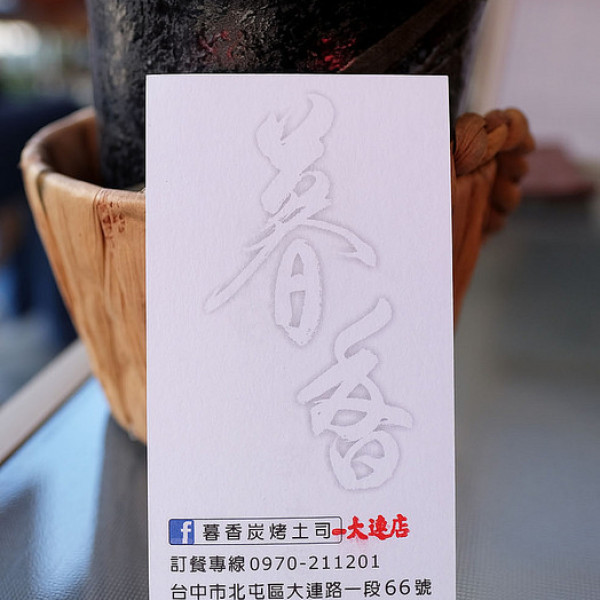 暮香
f 暮香炭烤土司-大連店
訂餐專線0970-211201
台中市北屯區大連路一段66號